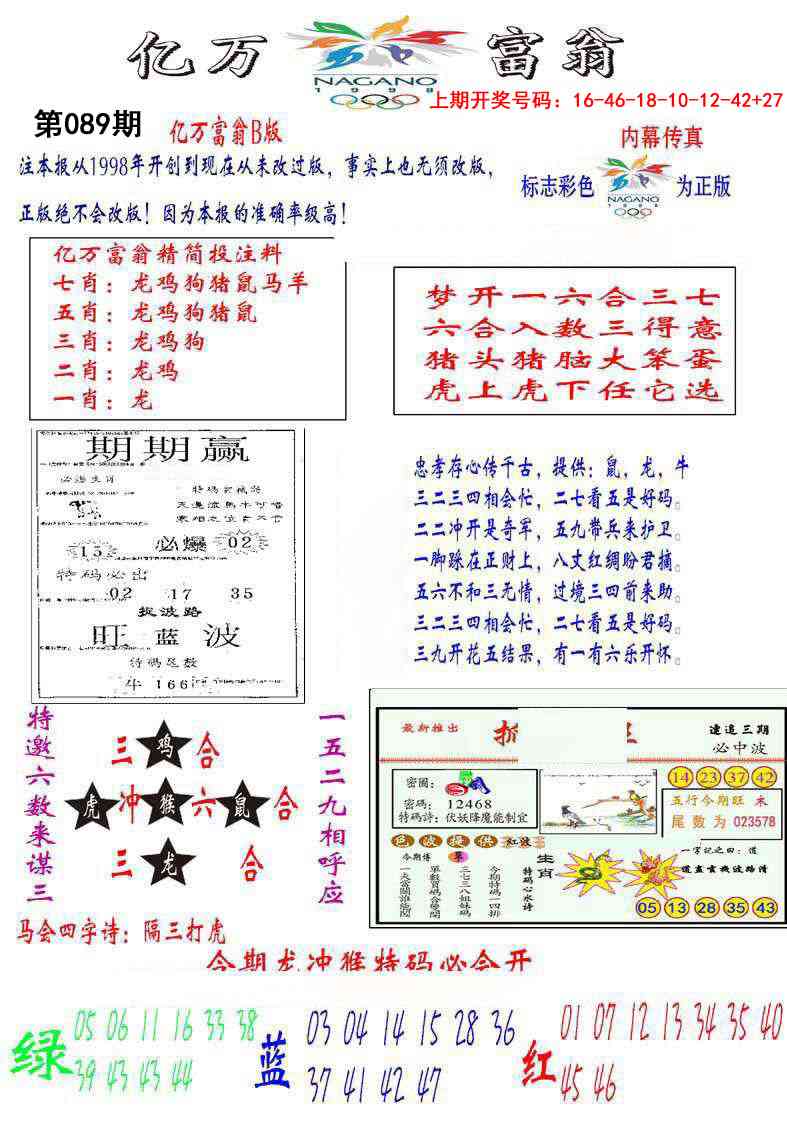 亿万
富翁
NAGANO
1998
上期开奖号码：16-46-18-10-12-42+27
第089期
亿万富翁B版
内幕传真
注本报从1998年开创到现在从未改过版，事实上也无须改版，
标志彩色
NAGANO
1998
为正版
正版绝不会改版！因为本报的准确率级高！
亿万富翁精简投注料
七肖：龙鸡狗猪鼠马羊
五肖：龙鸡狗猪鼠
三肖：龙鸡狗
二肖：龙鸡
一肖：龙
梦开一六合三七
六合入数三得意
猪头猪脑大笨蛋
虎上虎下任它选
期期赢
必爆
15
02
特码必出
02 17 35
捉波路
旺蓝波
牛 166
忠孝存心传千古，提供：鼠，龙，牛
三二三四相会忙，二七看五是好码。
二二冲开是奇军，五九带兵来护卫。
一脚跺在正财上，八丈红绸盼君摘。
五六不和三无情，过境三四前来助。
三二三四相会忙，二七看五是好码。
三九开花五结果，有一有六乐开怀。
特邀六数来谋三
三鸡合
虎冲猴六鼠合
三龙合
一五二九相呼应
马会四字诗：隔三打虎
最新推出
速追三期
必中波
14 23 37 42
密圈：
密码：12468
特码詩：伏妖降魔能制宜
五行今期旺 木
尾数为 023578
色波提供 红波
一字记之曰：道
道盖玄机波路清
生肖
今期博 單
特码心水诗
今期特码一四排
三七三八姐妹码
單數買碼合雙開
一夫當關誰能開
05 13 28 35 43
今期龙冲猴特码必合开
绿
05 06 11 16 33 38
39 43 43 44
蓝
03 04 14 15 28 36
37 41 42 47
红
01 07 12 13 34 35 40
45 46